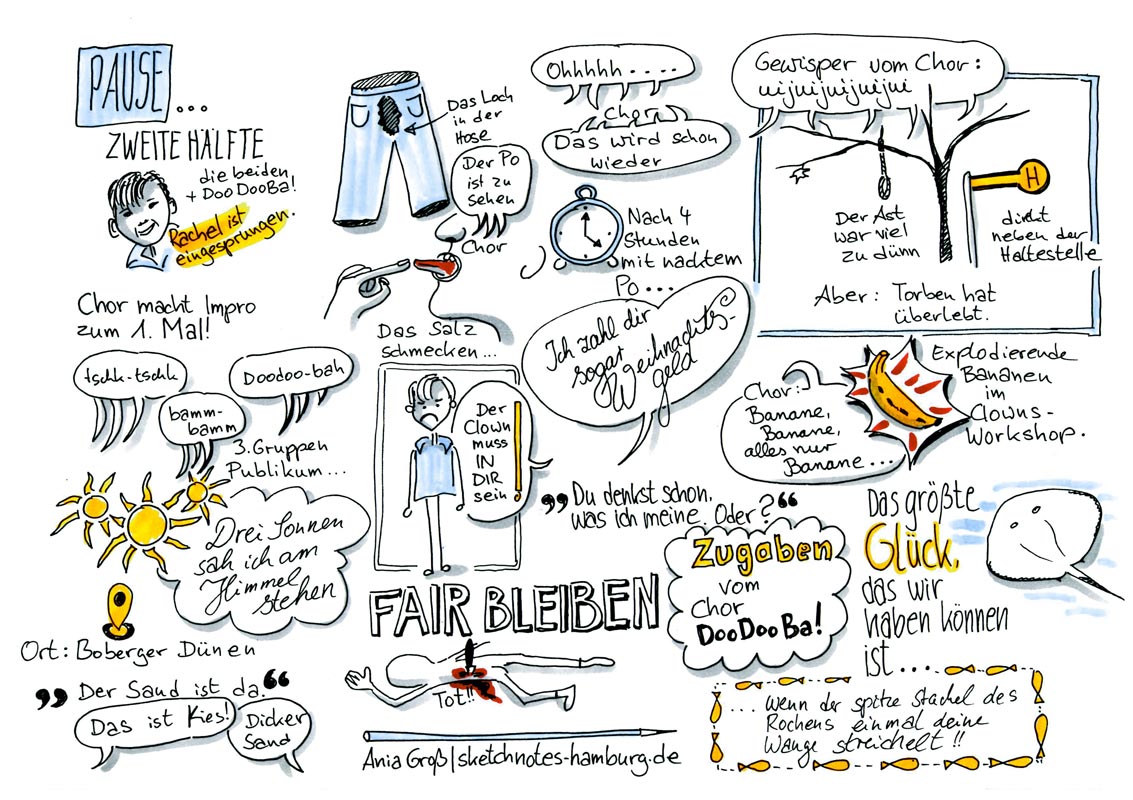 PAUSE ...
ZWEITE HÄLFTE
die beiden
+ DooDooBa!
Rachel ist
eingesprungen.
Chor macht Impro
zum 1. Mal!
tschk-tschk
Doodoo-bah
bamm-
bamm
3. Gruppen
Publikum...
Drei Sonnen
sah ich am
Himmel
stehen
Ort: Boberger Dünen
„Der Sand ist da.“
Das ist Kies!
Dicker
Sand
Das Loch
in der
Hose
Der Po
ist zu
sehen
Chor
Das Salz
schmecken...
Der
Clown
muss
IN
DIR
sein!
FAIR BLEIBEN
Tot!!
Ania Groß|sketchnotes-hamburg.de
Ohhhhh ....
Chor
Das wird schon
wieder
Nach 4
Stunden
mit nacktem
Po...
Ich zahl dir
sogar
Weihnachts-
geld
„Du denkst schon,
was ich meine. Oder?“
Zugaben
vom
Chor
DooDooBa!
Gewisper vom Chor:
uijuijuijuijui
Der Ast
war viel
zu dünn
H
direkt
neben der
Haltestelle
Aber: Torben hat
überlebt.
Chor:
Banane,
Banane,
alles nur
Banane...
Explodierende
Bananen
im
Clowns-
Workshop.
Das größte
Glück,
das wir
haben können
ist...
... wenn der spitze Stachel des
Rochens einmal deine
Wange streichelt!!